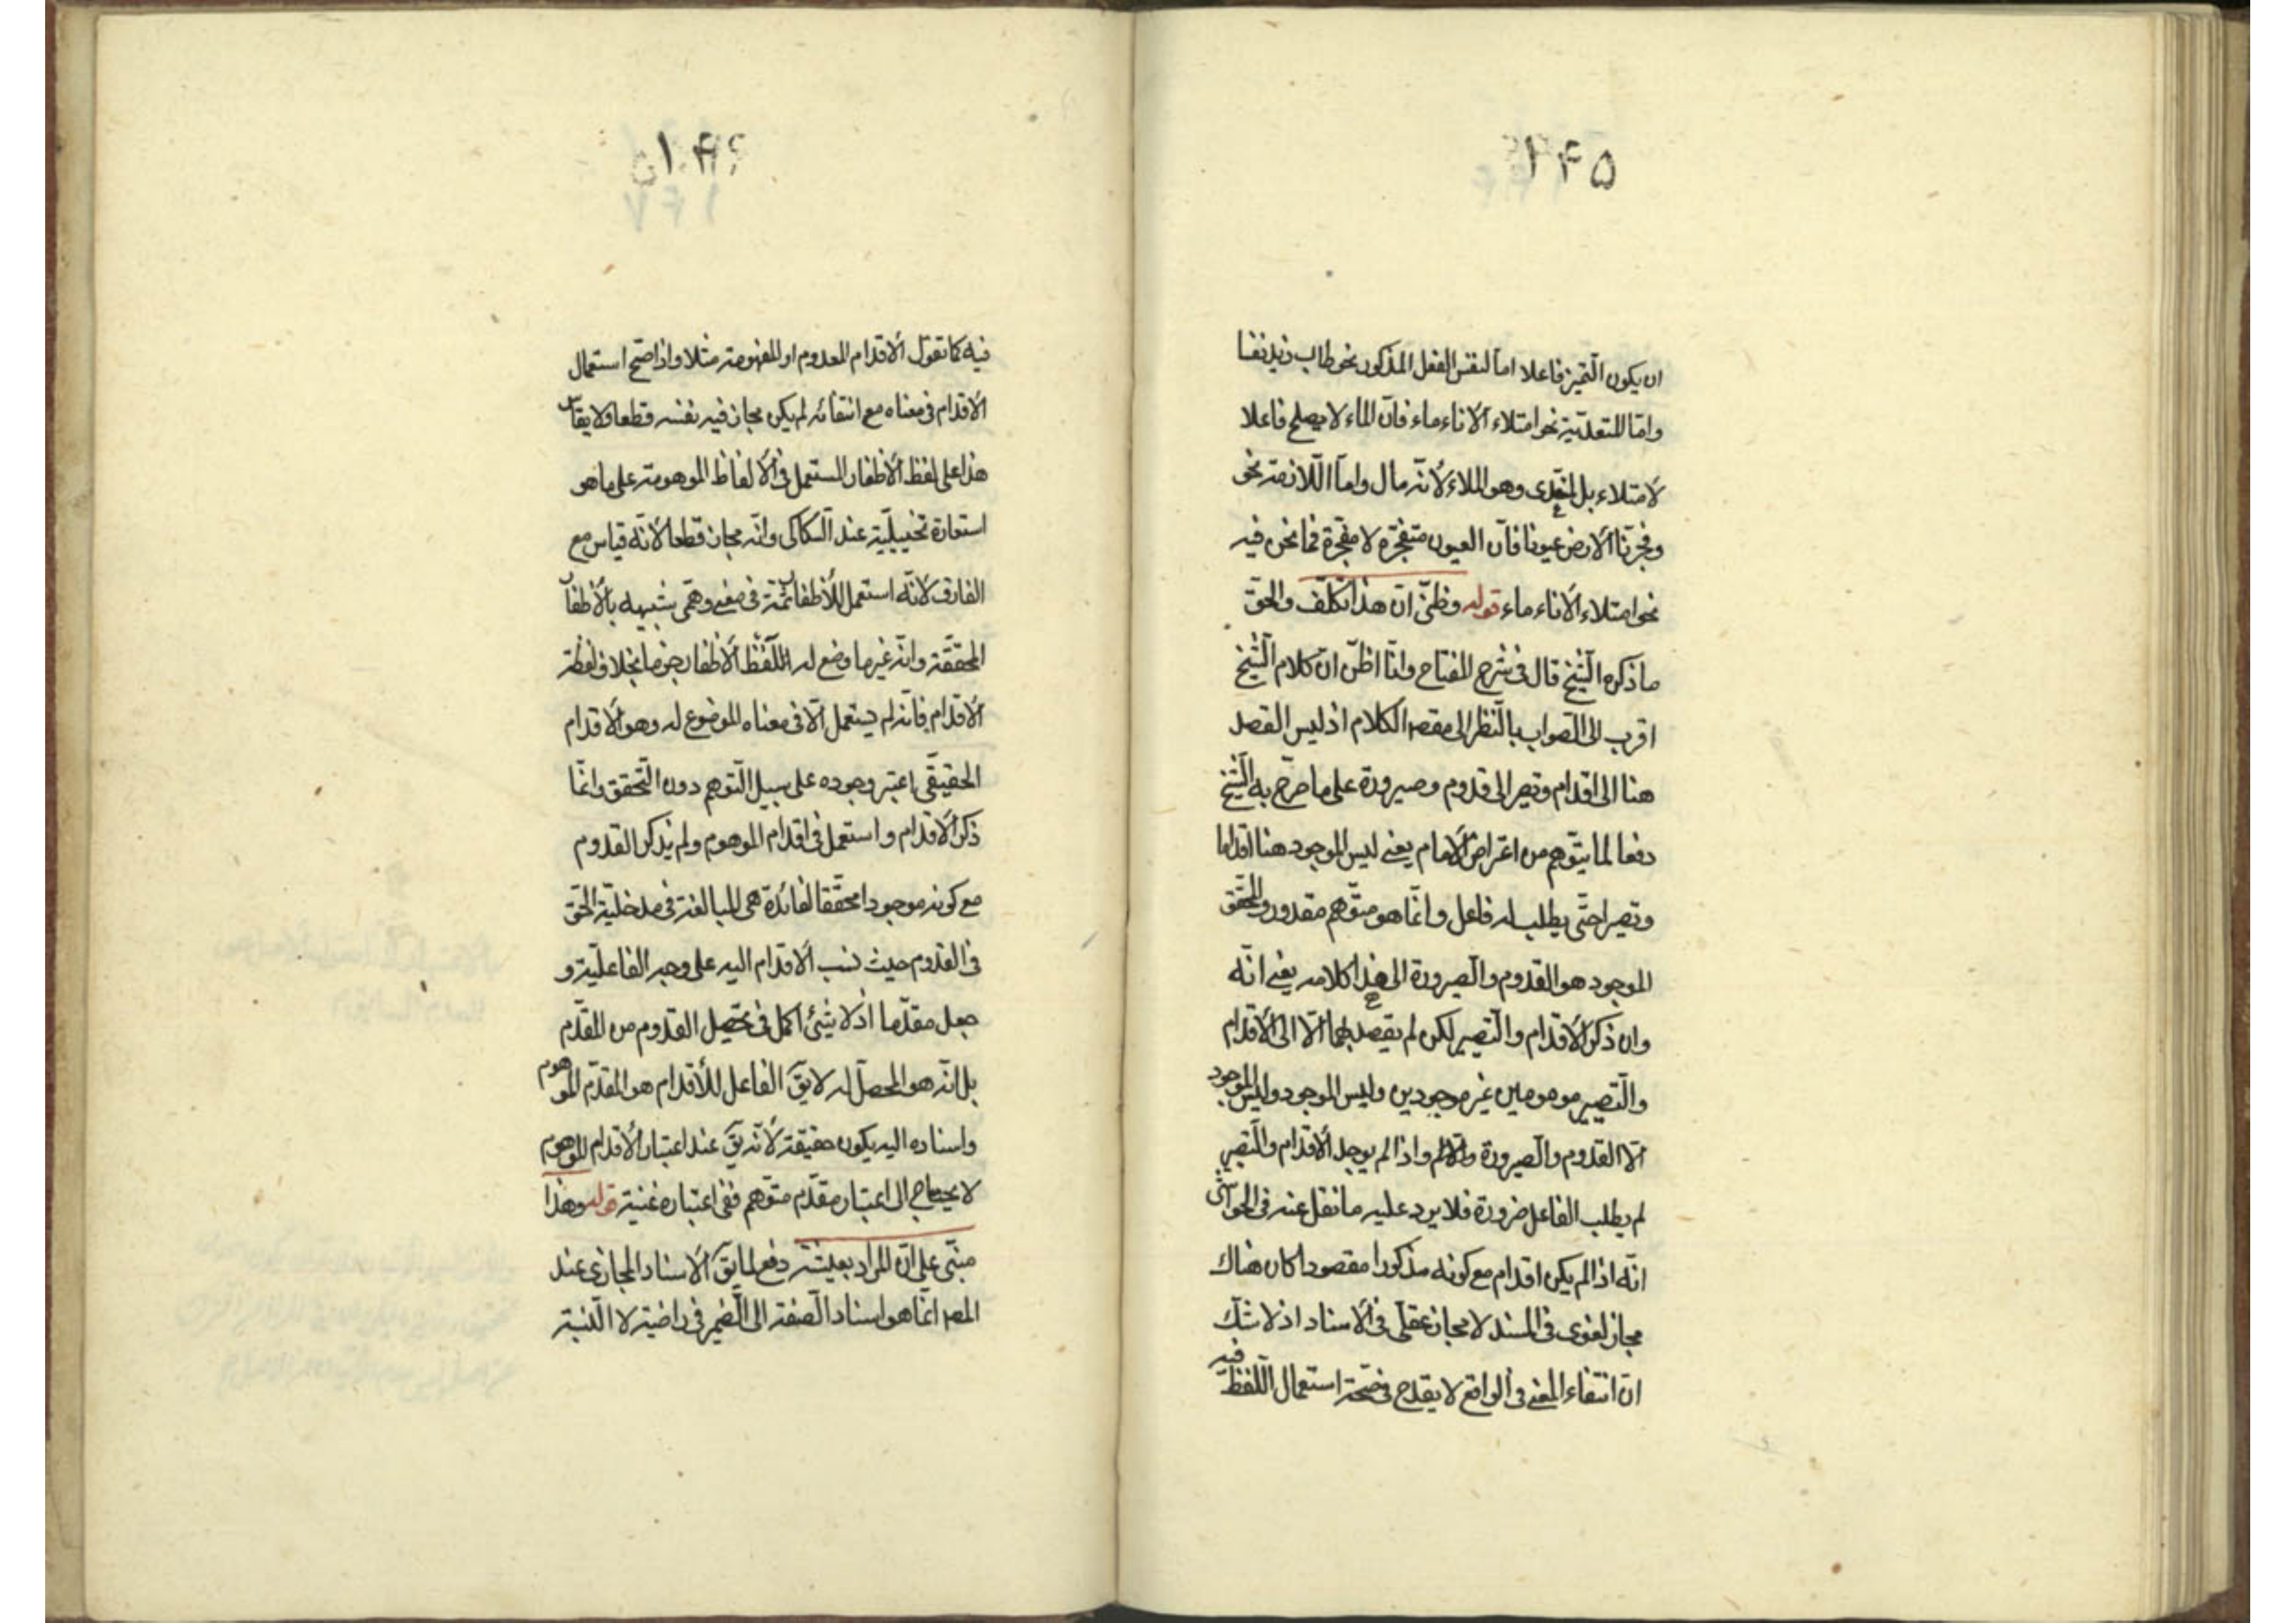 ۱۴۵
ان يكون التميز فاعلا اما لنفس الفعل المذكور نحو طاب زيد نفسا
واما للتعدية نحو امتلاء الاناء ماء فان الماء لا يصلح فاعلا
لامتلاء بل لمتعدى وهو الملاء لانه مال واما اللازمة نحو
وفجرنا الارض عيونا فان العيون متفجرة لا مفجرة فما نحن فيه
نحو امتلاء الاناء ماء قوله وظنى ان هذا تكلف والحق
ما ذكره الشيخ قال فى شرح المفتاح وانا اظن ان كلام الشيخ
اقرب الى الصواب بالنظر الى مقصد الكلام اذ ليس القصد
هنا الى اقدام وتصير الى قدوم وصيرورة على ما صرح به الشيخ
دفعا لما يتوهم من اعتراض الامام يعنى ليس الموجود هنا اقداما
وتصيرا حتى يطلب له فاعل وانما هو متوهم مقدور والمحقق
الموجود هو القدوم والصيرورة الى هذا كلامه يعنى انه
وان ذكر الاقدام والتصيير لكن لم يقصد بهما الا الى الاقدام
والتصيير موهومين غير موجودين وليس الموجود وليس الموجود
الا القدوم والصيرورة واذا لم يوجد الاقدام والتصيير
لم يطلب الفاعل ضرورة فلا يرد عليه ما نقل عنه فى الحواشى
انه اذا لم يكن اقدام مع كونه مذكورا مقصودا كان هناك
مجاز لغوى فى المسند لا مجاز عقلى فى الاسناد اذ لا شك
ان انتفاء المعنى فى الواقع لا يقدح فى صحة استعمال اللفظ فيه
۱۴۶
فيه كما تقول الاقدام المعدوم او المفهومة مثلا واذا صح استعمال
الاقدام فى معناه مع انتفائه لم يكن مجاز فيه نفسه قطعا ولا يقاس
هذا على لفظ الاظفار المستعمل فى الالفاظ الموهومة على ما هو
استعارة تخييلية عند السكاكى وانه مجاز قطعا لانه قياس مع
الفارق لانه استعمل للاظفار ثمة فى معنى وهمى شبيهه بالاظفار
المحققة وانه غير ما وضع له اللفظ الاظفار جزما بخلاف لفظة
الاقدام فانه لم يستعمل الا فى معناه الموضوع له وهو الاقدام
الحقيقى اعتبر وجوده على سبيل التوهم دون التحقق وانما
ذكر الاقدام واستعمل فى اقدام الموهوم ولم يذكر القدوم
مع كونه موجودا محققا لفائدة هى المبالغة فى مدخلية الحق
فى القدوم حيث نسب الاقدام اليه على وجه الفاعلية و
جعل مقدما اذ لا شئ اكمل فى تحصل القدوم من المقدم
بل انه هو المحصل له لا يق الفاعل للاقدام هو المقدم الموهوم
واسناده اليه يكون حقيقة لانه يق عند اعتبار الاقدام الموهوم
لا يحتاج الى اعتبار مقدم متوهم ففى اعتباره غنية قوله وهذا
مبنى على ان المراد بعيشة دفع لما يق الاسناد المجازى عند
المص انما هو اسناد الصفة الى الضمير فى راضية لا النسبة